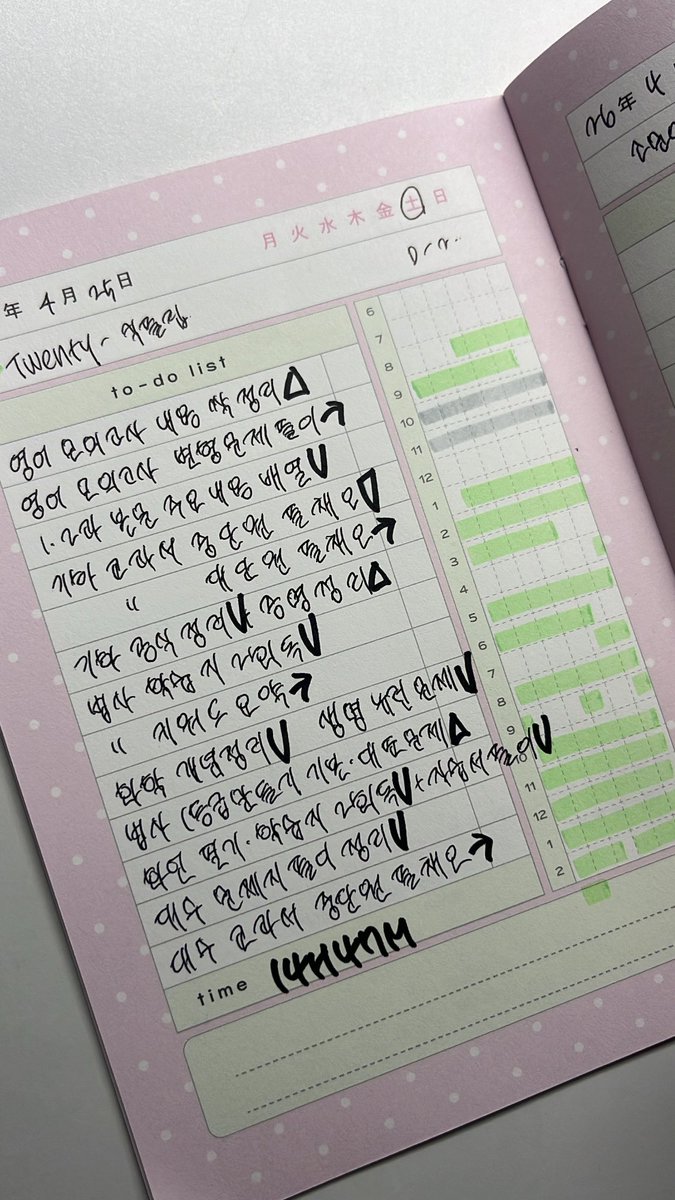 年 4月 25日
月 火 水 木 金 土 日
D-
Twenty-
to-do list
영어 모의고사 내용 싹 정리 △
영어 모의고사 변형문제 풀이 →
1. 2과 본문 주요내용 배열 V
기하 교과서 중단원 풀채오
" 대단원 풀채오 →
기하 공식 정리 V 증명정리 △
법사 학습지 나회독 V
" →
화학 개념정리 V 생명 유전 문제 V
법사 (등급만들기 기본·대표문제 △
확인 필기·학습지 나회독 V + 자습서 풀이 V
대수 문제지 풀이 정리 V
대수 교과서 중단원 풀채오 →
time 14H47M
6
7
8
9
10
11
12
1
2
3
4
5
6
7
8
9
10
11
12
1
2
26年 4